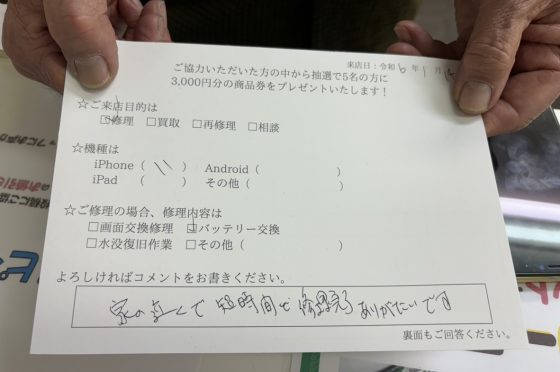 来店日：令和 6 年 1 月
ご協力いただいた方の中から抽選で5名の方に
3,000円分の商品券をプレゼントいたします！
☆ご来店目的は
□修理 □買取 □再修理 □相談
☆機種は
iPhone（ 11 ） Android（ ）
iPad （ ） その他（ ）
☆ご修理の場合、修理内容は
□画面交換修理 □バッテリー交換
□水没復旧作業 □その他（ ）
よろしければコメントをお書きください。
家の近くで短時間で修理完了ありがたいです
裏面もご回答ください。